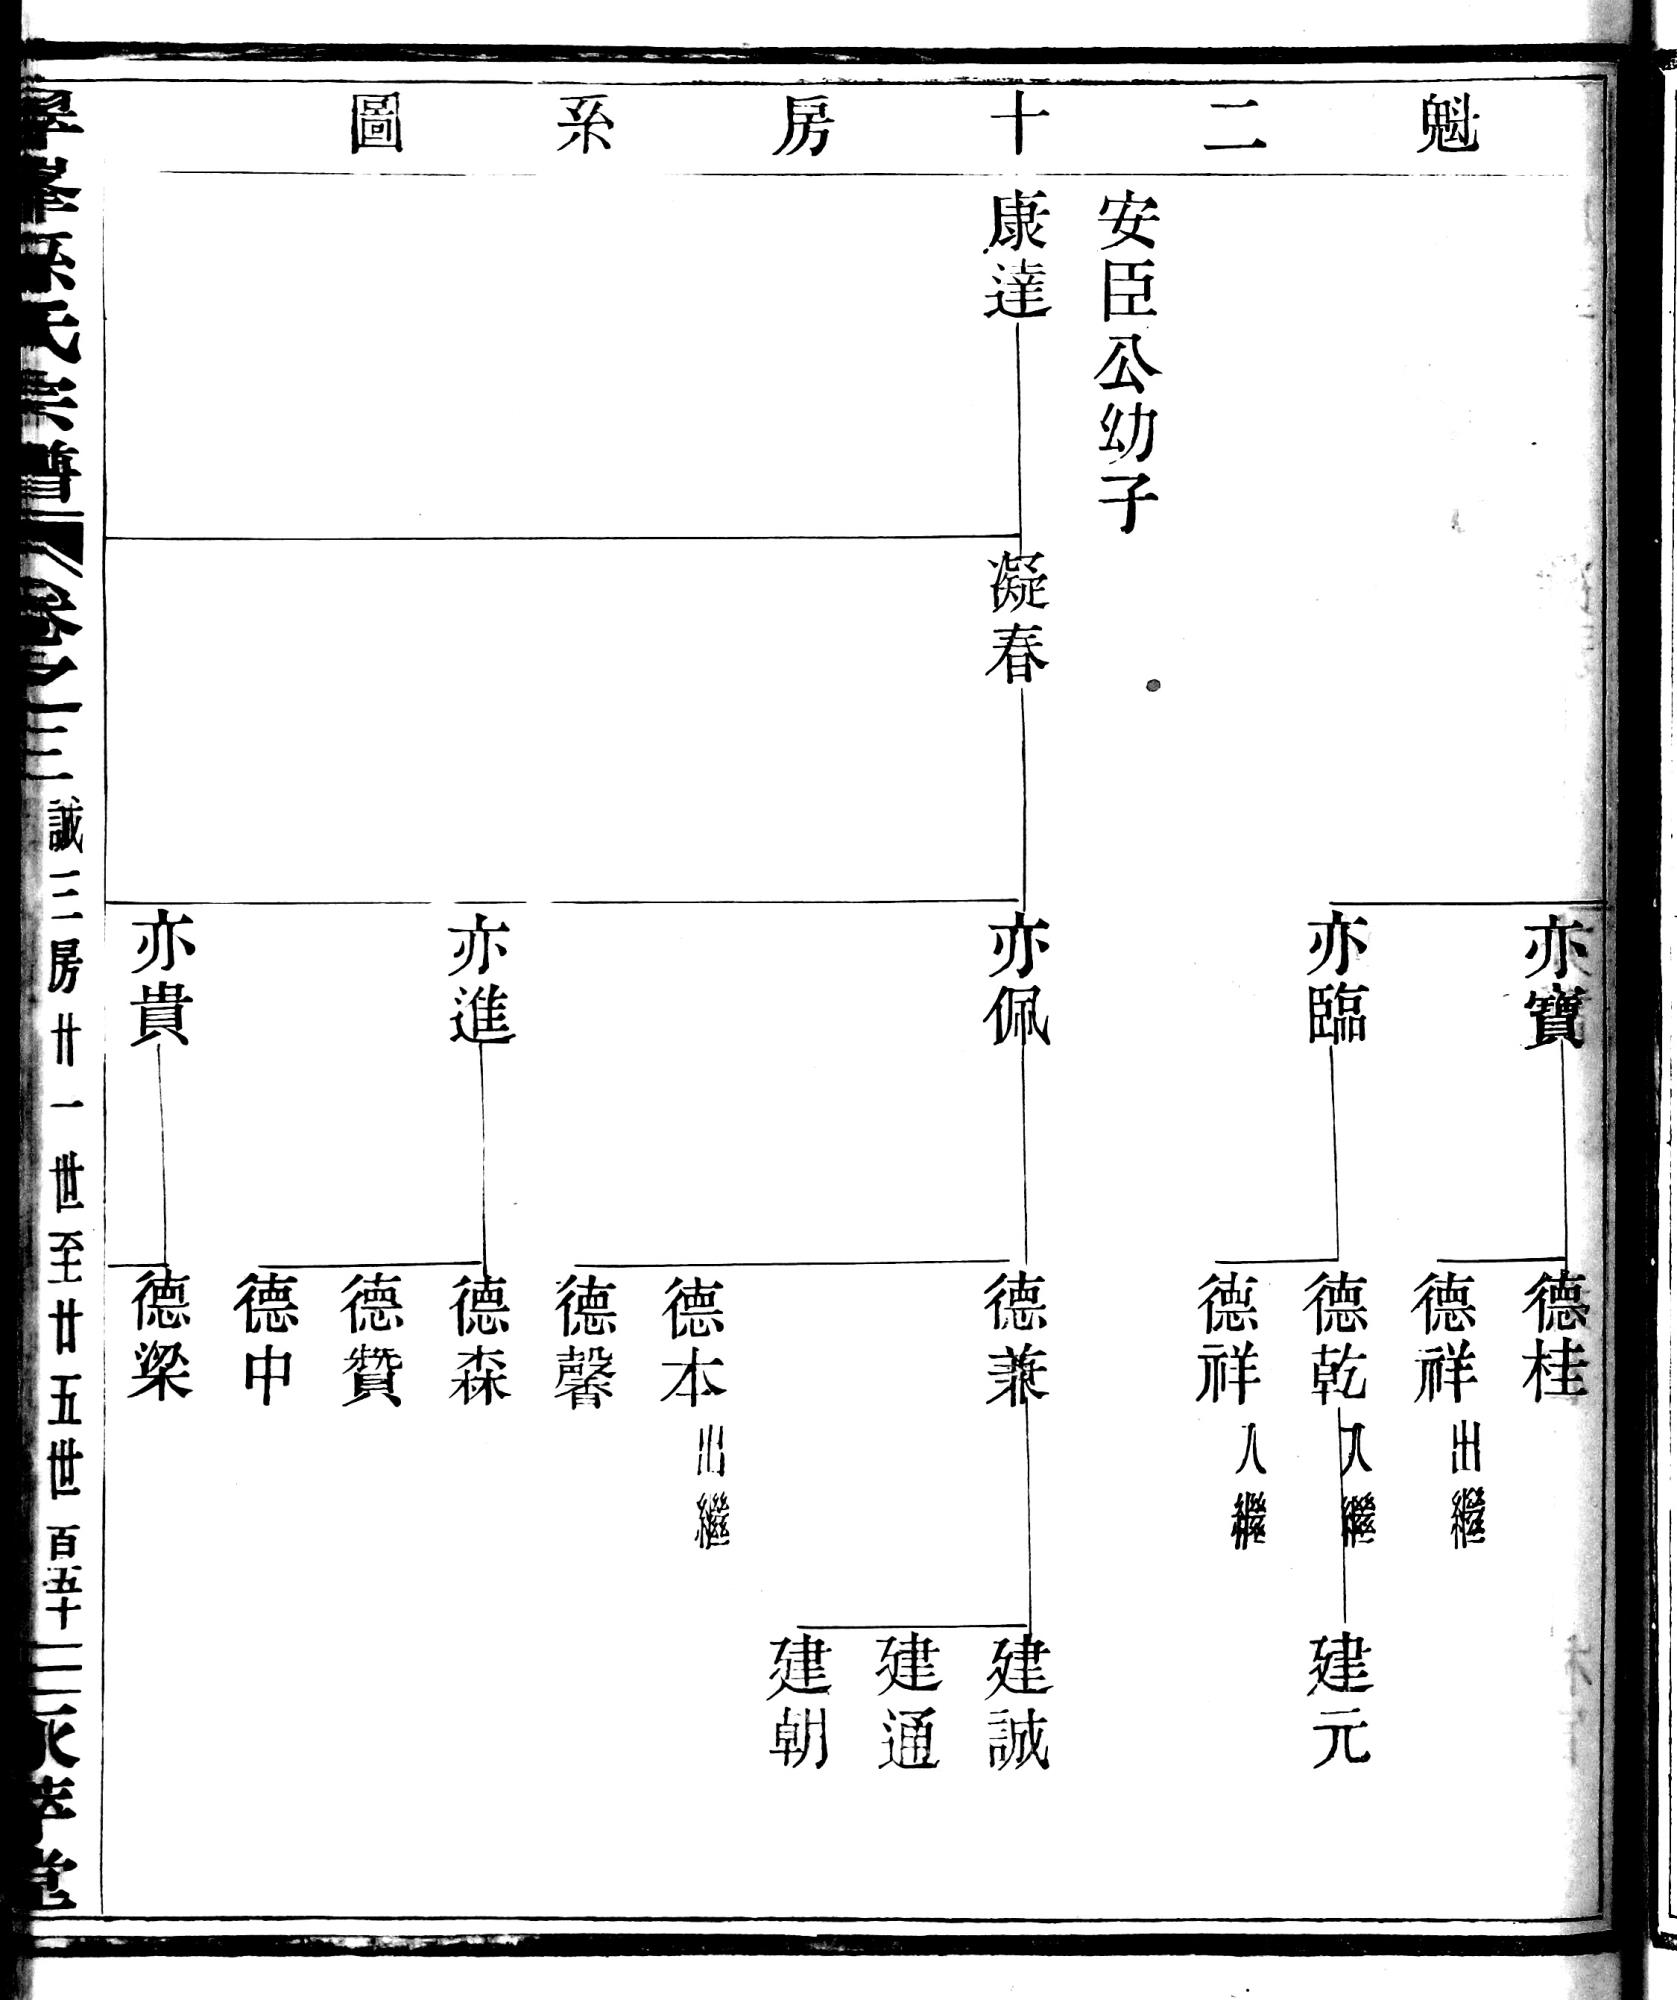 魁二十房系圖
安臣公幼子
康達
凝春
亦寶
亦臨
亦佩
亦進
亦貴
德桂
德祥 出繼
德乾 入繼
德祥 入繼
德兼
德本 出繼
德馨
德森
德贊
德中
德梁
建元
建誠
建通
建朝
孫氏宗譜 卷之三 誠三房廿一世至廿五世 百五十二 堂